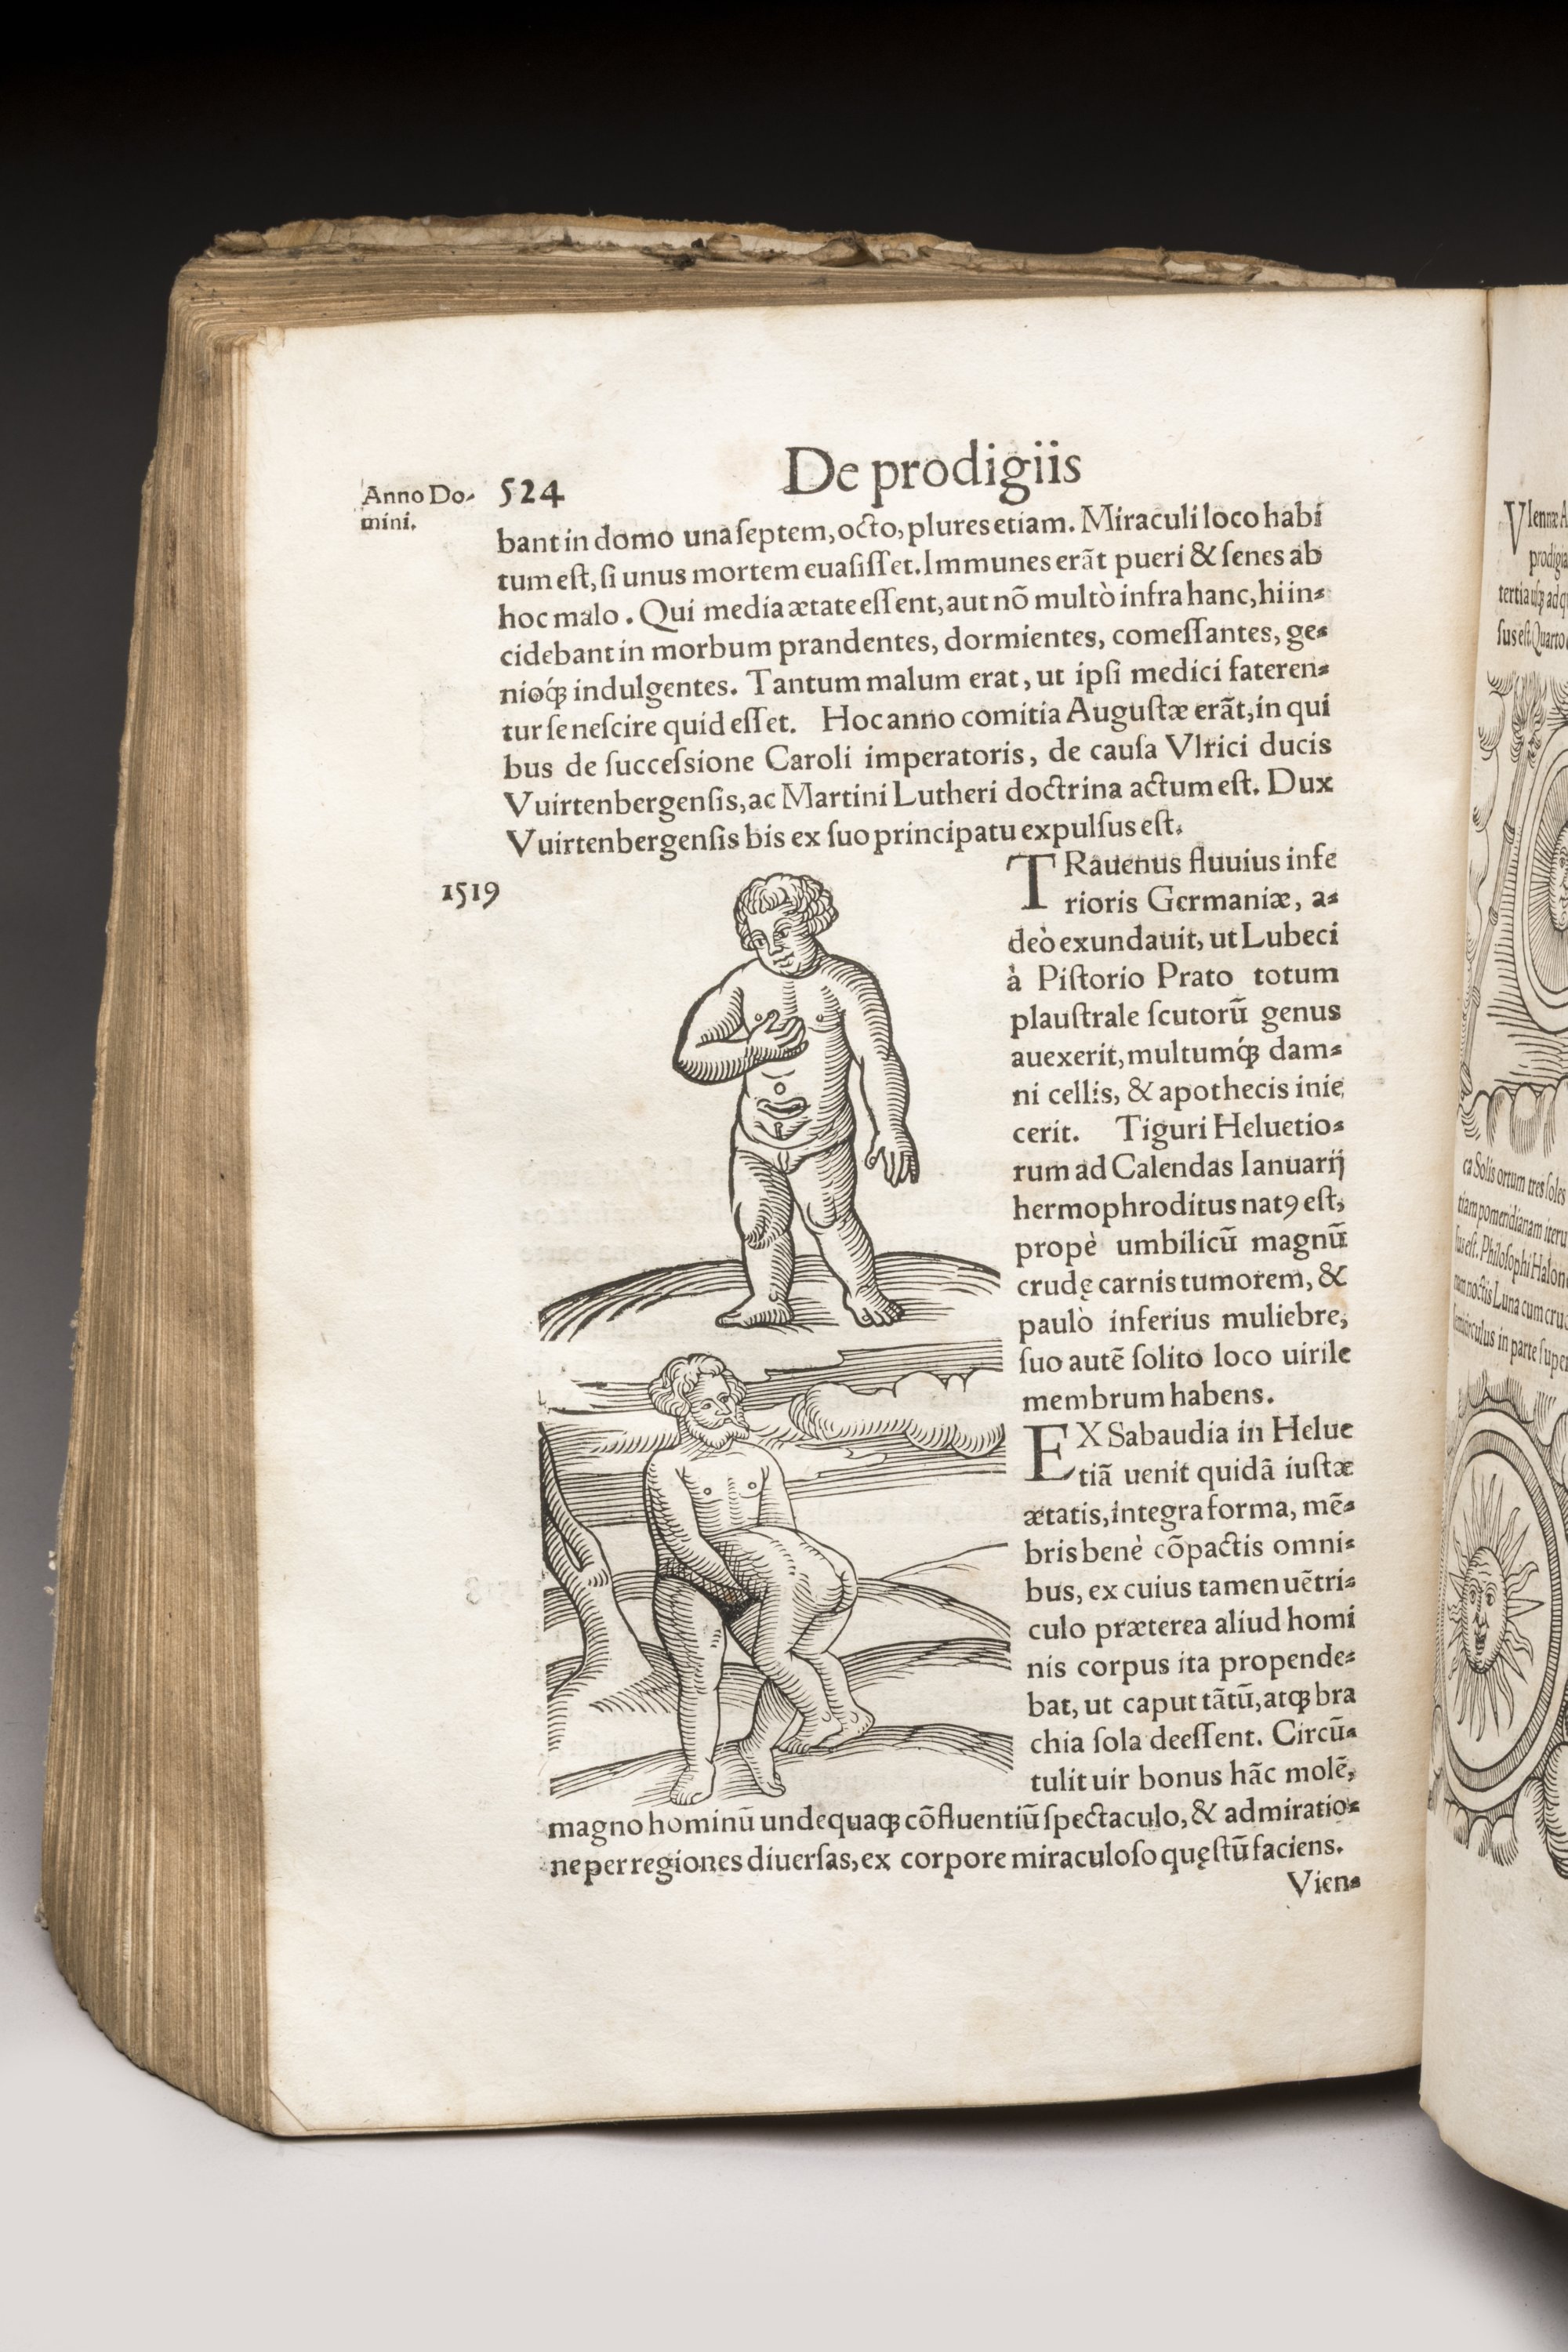 De prodigiis
Anno Do-
mini.
524
bant in domo una ſeptem, octo, plures etiam. Miraculi loco habi
tum eſt, ſi unus mortem euaſiſſet. Immunes erãt pueri & ſenes ab
hoc malo. Qui media ætate eſſent, aut nõ multò infra hanc, hi in-
cidebant in morbum prandentes, dormientes, comeſſantes, ge-
nioq́ꝫ indulgentes. Tantum malum erat, ut ipſi medici fateren-
tur ſe neſcire quid eſſet. Hoc anno comitia Auguſtæ erãt, in qui
bus de ſucceſsione Caroli imperatoris, de cauſa Vlrici ducis
Vuirtenbergenſis, ac Martini Lutheri doctrina actum eſt. Dux
Vuirtenbergenſis bis ex ſuo principatu expulſus eſt.
1519
TRauenus fluuius infe
rioris Germaniæ, a-
deò exundauit, ut Lubeci
à Piſtorio Prato totum
plauſtrale ſcutorũ genus
auexerit, multumq́ꝫ dam-
ni cellis, & apothecis inie
cerit. Tiguri Heluetio-
rum ad Calendas Ianuarij
hermophroditus natꝰ eſt,
propè umbilicũ magnũ
crudę carnis tumorem, &
paulò inferius muliebre,
ſuo autẽ ſolito loco uirile
membrum habens.
EX Sabaudia in Helue
tiã uenit quidã iuſtæ
ætatis, integra forma, mẽ-
bris benè cõpactis omni-
bus, ex cuius tamen uẽtri-
culo præterea aliud homi
nis corpus ita propende-
bat, ut caput tãtũ, atqꝫ bra
chia ſola deeſſent. Circũ-
tulit uir bonus hãc molẽ,
magno hominũ undequaqꝫ cõfluentiũ ſpectaculo, & admiratio-
ne per regiones diuerſas, ex corpore miraculoſo quęſtũ faciens.
Vien-
prodigia
tertia uſqꝫ ad q
ſus eſt. Quarto
ca Solis ortum tres ſoles
tiam pomeridianam iteru
ſus eſt. Philoſophi Halon
nam noctis Luna cum cruc
ſemicirculus in parte ſuper